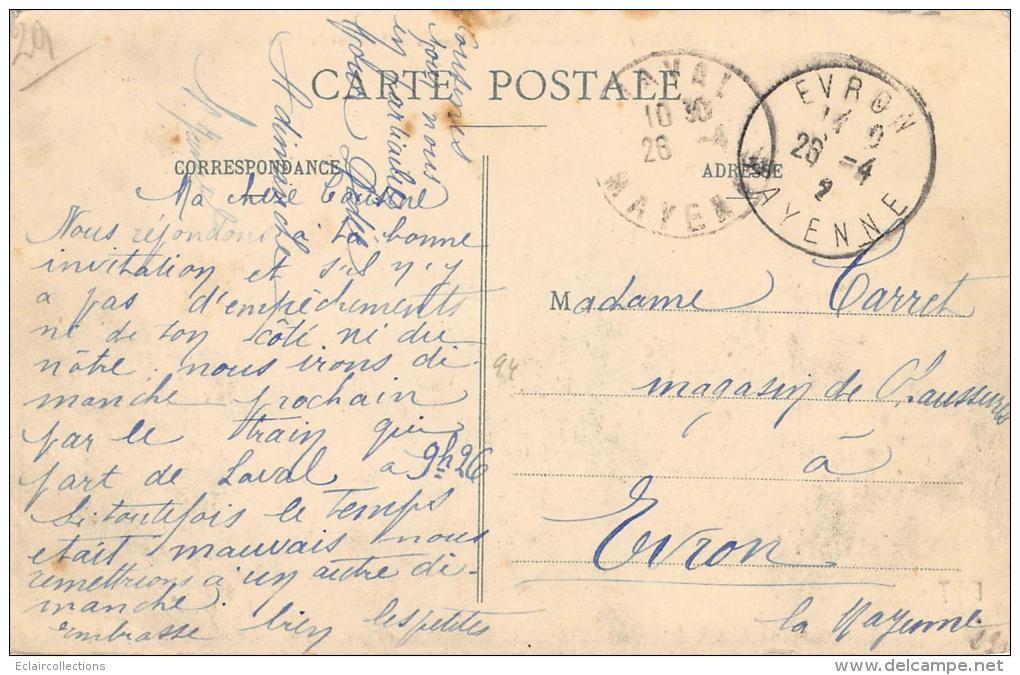 29
CARTE POSTALE
LAVAL
10 30
26 -4
MAYENNE
EVRON
14
26 -4
MAYENNE
CORRESPONDANCE
ADRESSE
Ma chère Cousine
Nous répondons à ta bonne
invitation et s'il n'y
a pas d'empêchements
ni de ton côté ni du
nôtre. nous irons di-
manche prochain
par le train qui
part de Laval a 9h26
Si toutefois le temps
etait mauvais nous
remettrions à un autre di-
manche.
embrasse bien les petites
cousines
pour nous
en particulier
A dimanche
Madame Carret
magasin de Chaussures
à
Evron
la Mayenne
94
Eclaircollections
www.delcampe.net